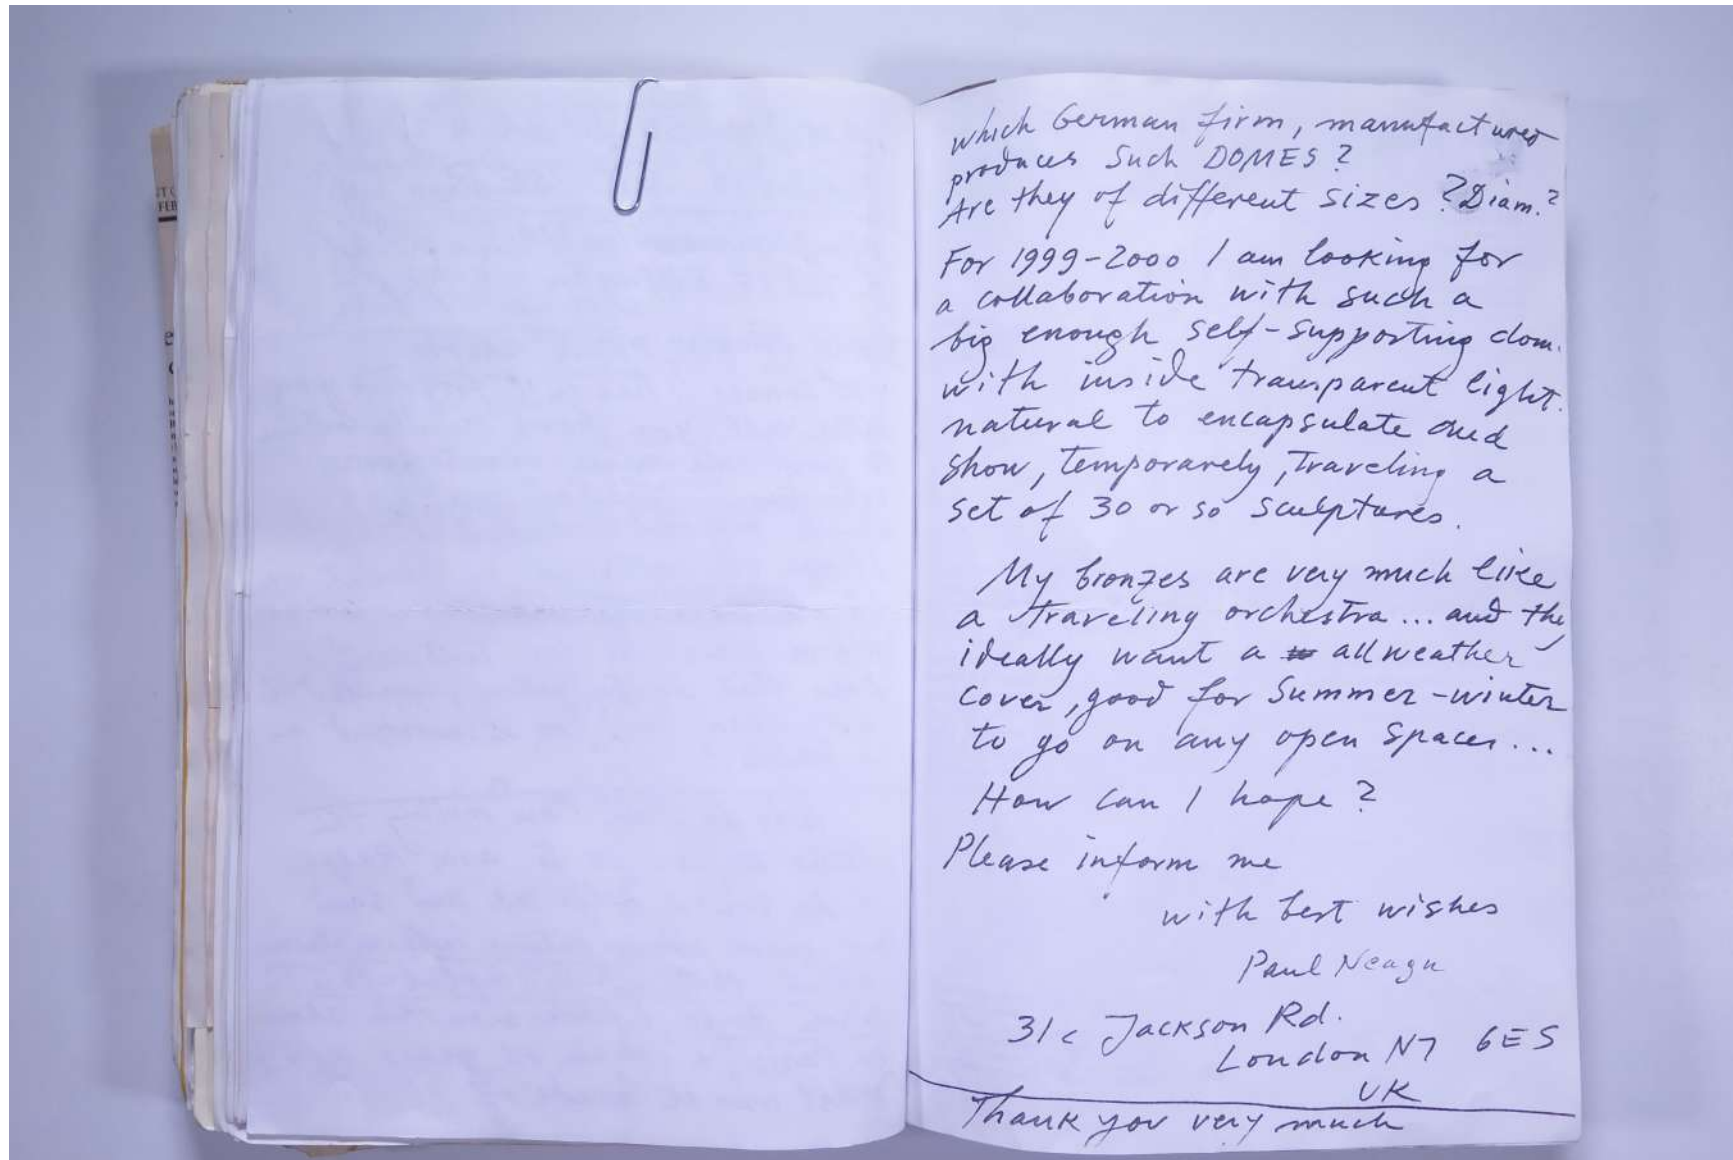 which German firm, manufactured
produces such DOMES?
Are they of different sizes? Diam.?
For 1999-2000 I am looking for
a collaboration with such a
big enough self-supporting dom.
with inside transparent light.
natural to encapsulate and
show, temporarely, traveling a
set of 30 or so sculptures.
My bronzes are very much like
a traveling orchestra... and they
ideally want a all weather
cover, good for Summer-winter
to go on any open spaces...
How can I hope?
Please inform me
with best wishes
Paul Neagu
31c Jackson Rd.
London N7 6ES
UK
Thank you very much